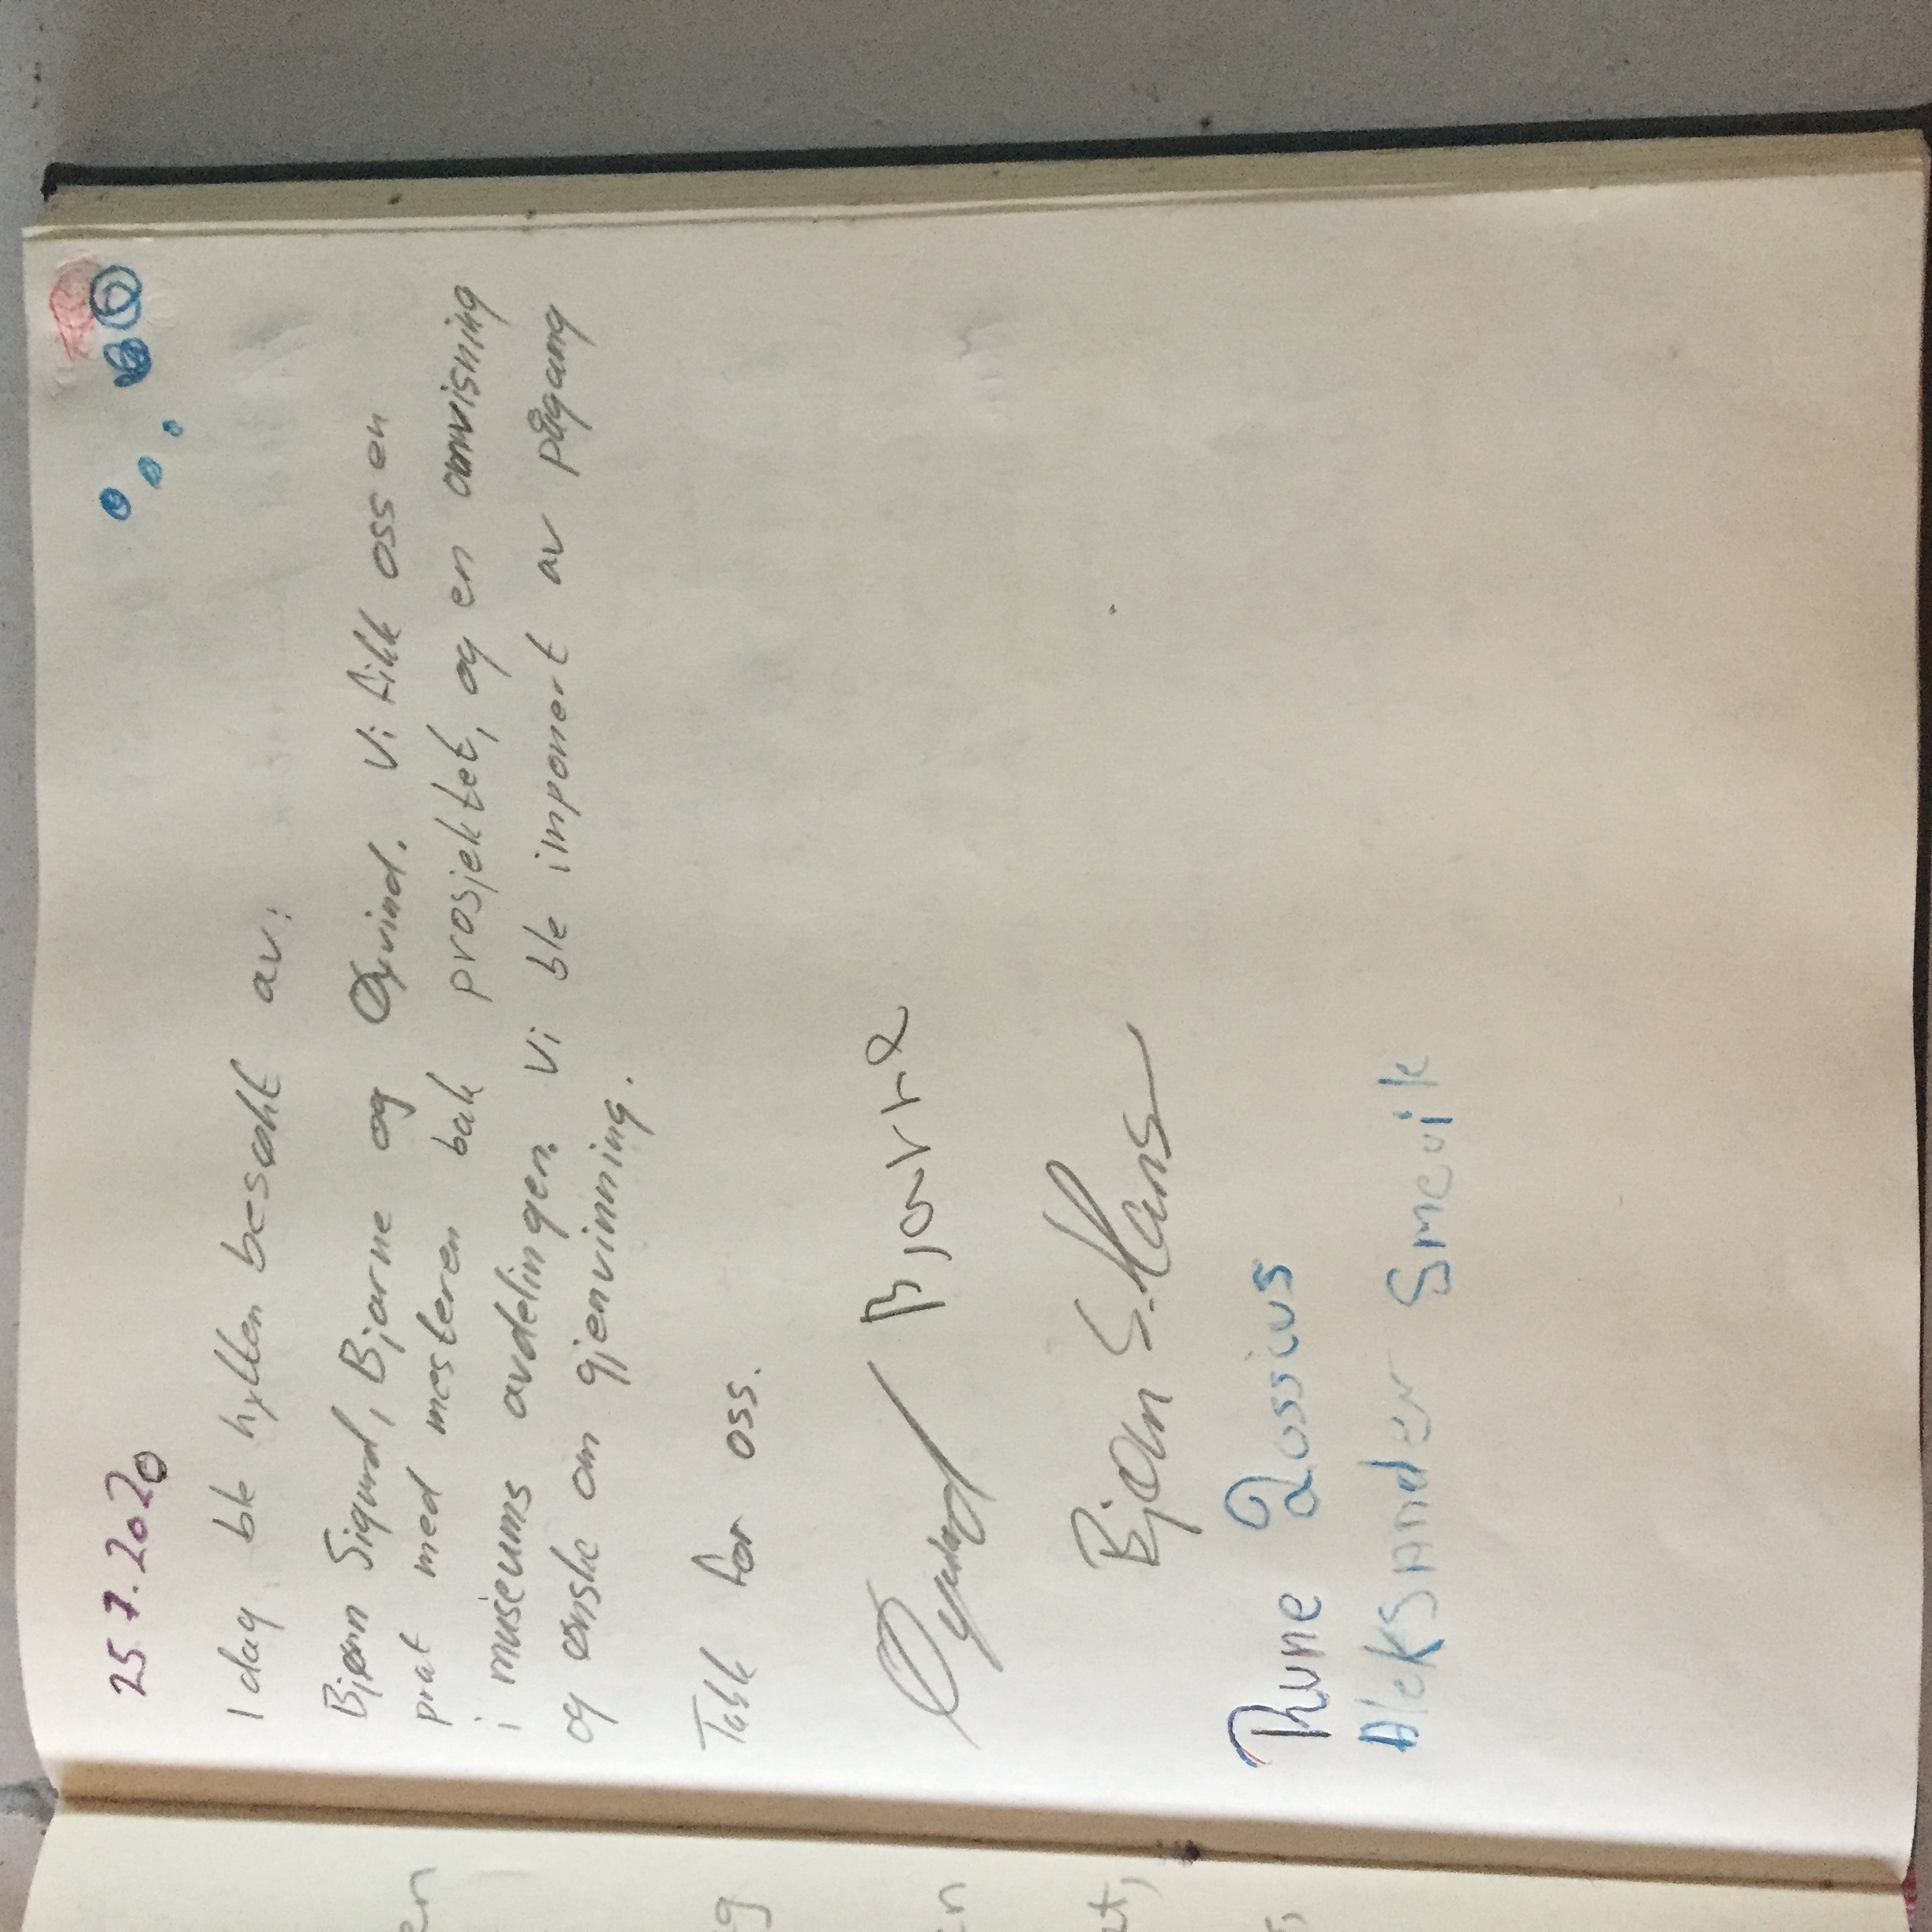 25.7.2020
I dag ble hytten besøkt av:
Bjørn Sigurd, Bjarne og Øyvind. Vi fikk oss en
prat med mesteren bak prosjektet, og en omvisning
i museums avdelingen. Vi ble imponert av pågang
og ønske om gjenvinning.
Takk for oss.
Øyvind Bjarne
Bjørn S.
Rune
Aleksander Smevik
en
g
en
at,